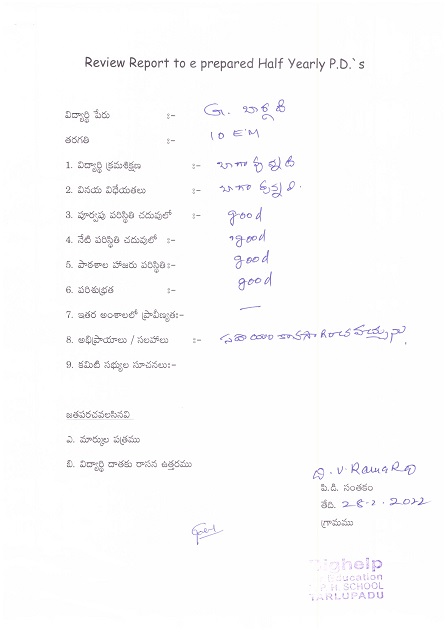 Review Report to e prepared Half Yearly P.D.`s
విద్యార్థి పేరు :- G. బార్గవి
తరగతి :- 10 E.M
1. విద్యార్థి క్రమశిక్షణ :- బాగా వున్నది
2. వినయ విధేయతలు :- బాగా వున్నది.
3. పూర్వపు పరిస్థితి చదువులో :- good
4. నేటి పరిస్థితి చదువులో :- good
5. పాఠశాల హాజరు పరిస్థితి:- good
6. పరిశుభ్రత :- good
7. ఇతర అంశాలలో ప్రావీణ్యత:- —
8. అభిప్రాయాలు / సలహాలు :- సహాయం కొనసాగించవచ్చును.
9. కమిటి సభ్యుల సూచనలు:-
జతపరచవలసినవి
ఎ. మార్కుల పత్రము
బి. విద్యార్థి దాతకు రాసిన ఉత్తరము
D. V. Rama Rao
పి.డి. సంతకం
తేది. 28-2-2022
గ్రామము
Bighelp
Education
H SCHOOL
TARLUPADU